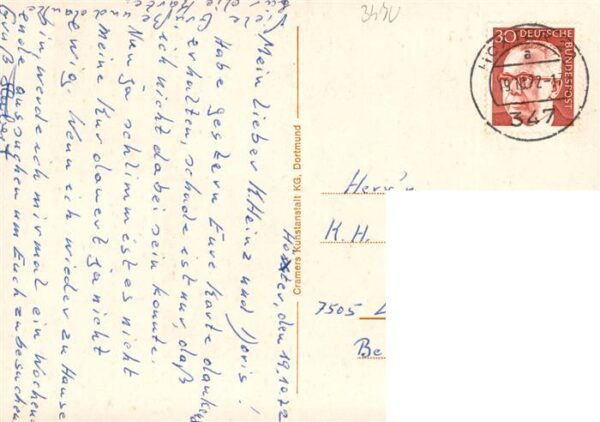 3470
30 DEUTSCHE
BUNDESPOST
a
19.10.72-1
347
Höxter, den 19.10.72
Mein lieber K. Heinz und Doris!
Habe gestern Eure Karte dankend
erhalten, schade ist nur, daß
ich nicht dabei sein konnte.
Na ja schlimm ist es nicht
meine Kur dauert ja nicht
ewig. Wenn ich wieder zu Hause
bin, werde ich mir mal ein Wochen
ende aussuchen um Euch zu besuchen
Gruß Hubert
Viele
Cramers Kunstanstalt KG, Dortmund
Herrn
K. H.
7505
Be